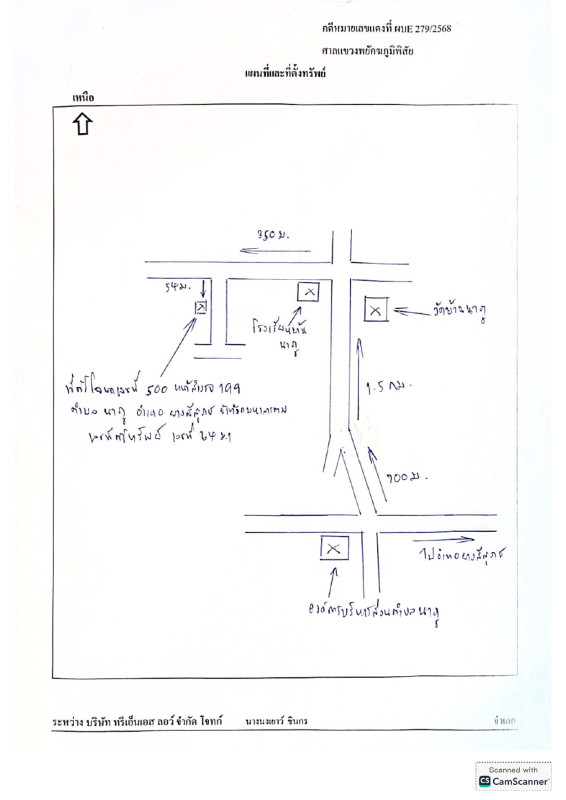 คดีหมายเลขแดงที่ ผบE 279/2568
ศาลแขวงพยัคฆภูมิพิสัย
แผนที่และที่ตั้งทรัพย์
เหนือ
350 ม.
54ม.
โรงเรียนบ้าน
นาภู
วัดบ้านนาภู
ที่ตั้งโฉนดเลขที่ 500 หน้าสำรวจ 199
ตำบล นาภู อำเภอ ยางสีสุราช จังหวัดมหาสารคาม
เลขที่ 64 ม.1
1.5 กม.
700 ม.
ไปอำเภอยางสีสุราช
องค์การบริหารส่วนตำบลนาภู
ระหว่าง บริษัท ทรีเอ็นเอส ลอว์ จำกัด โจทก์ นางนงเยาว์ ชินกร จำเลย
Scanned with
CS CamScanner